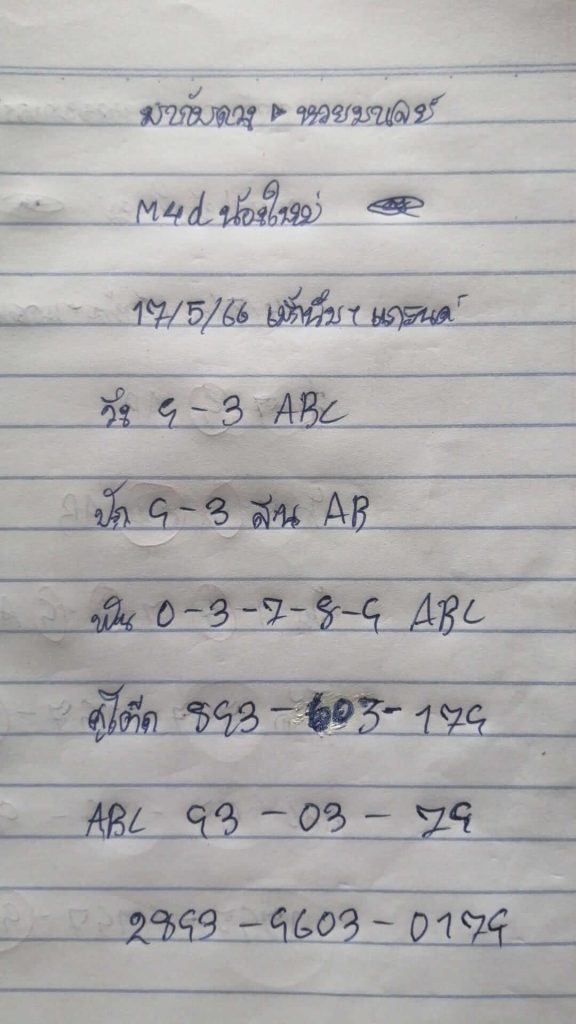 มากับดวง ▸ หวยมาเลย์
M4d น้องใหม่
17/5/66 แกรนด์
วิ่ง 9-3 ABC
ปัก 9-3 สน AB
ฟัน 0-3-7-8-9 ABC
คู่โต๊ด 893-603-179
ABC 93-03-79
2893-9603-0179